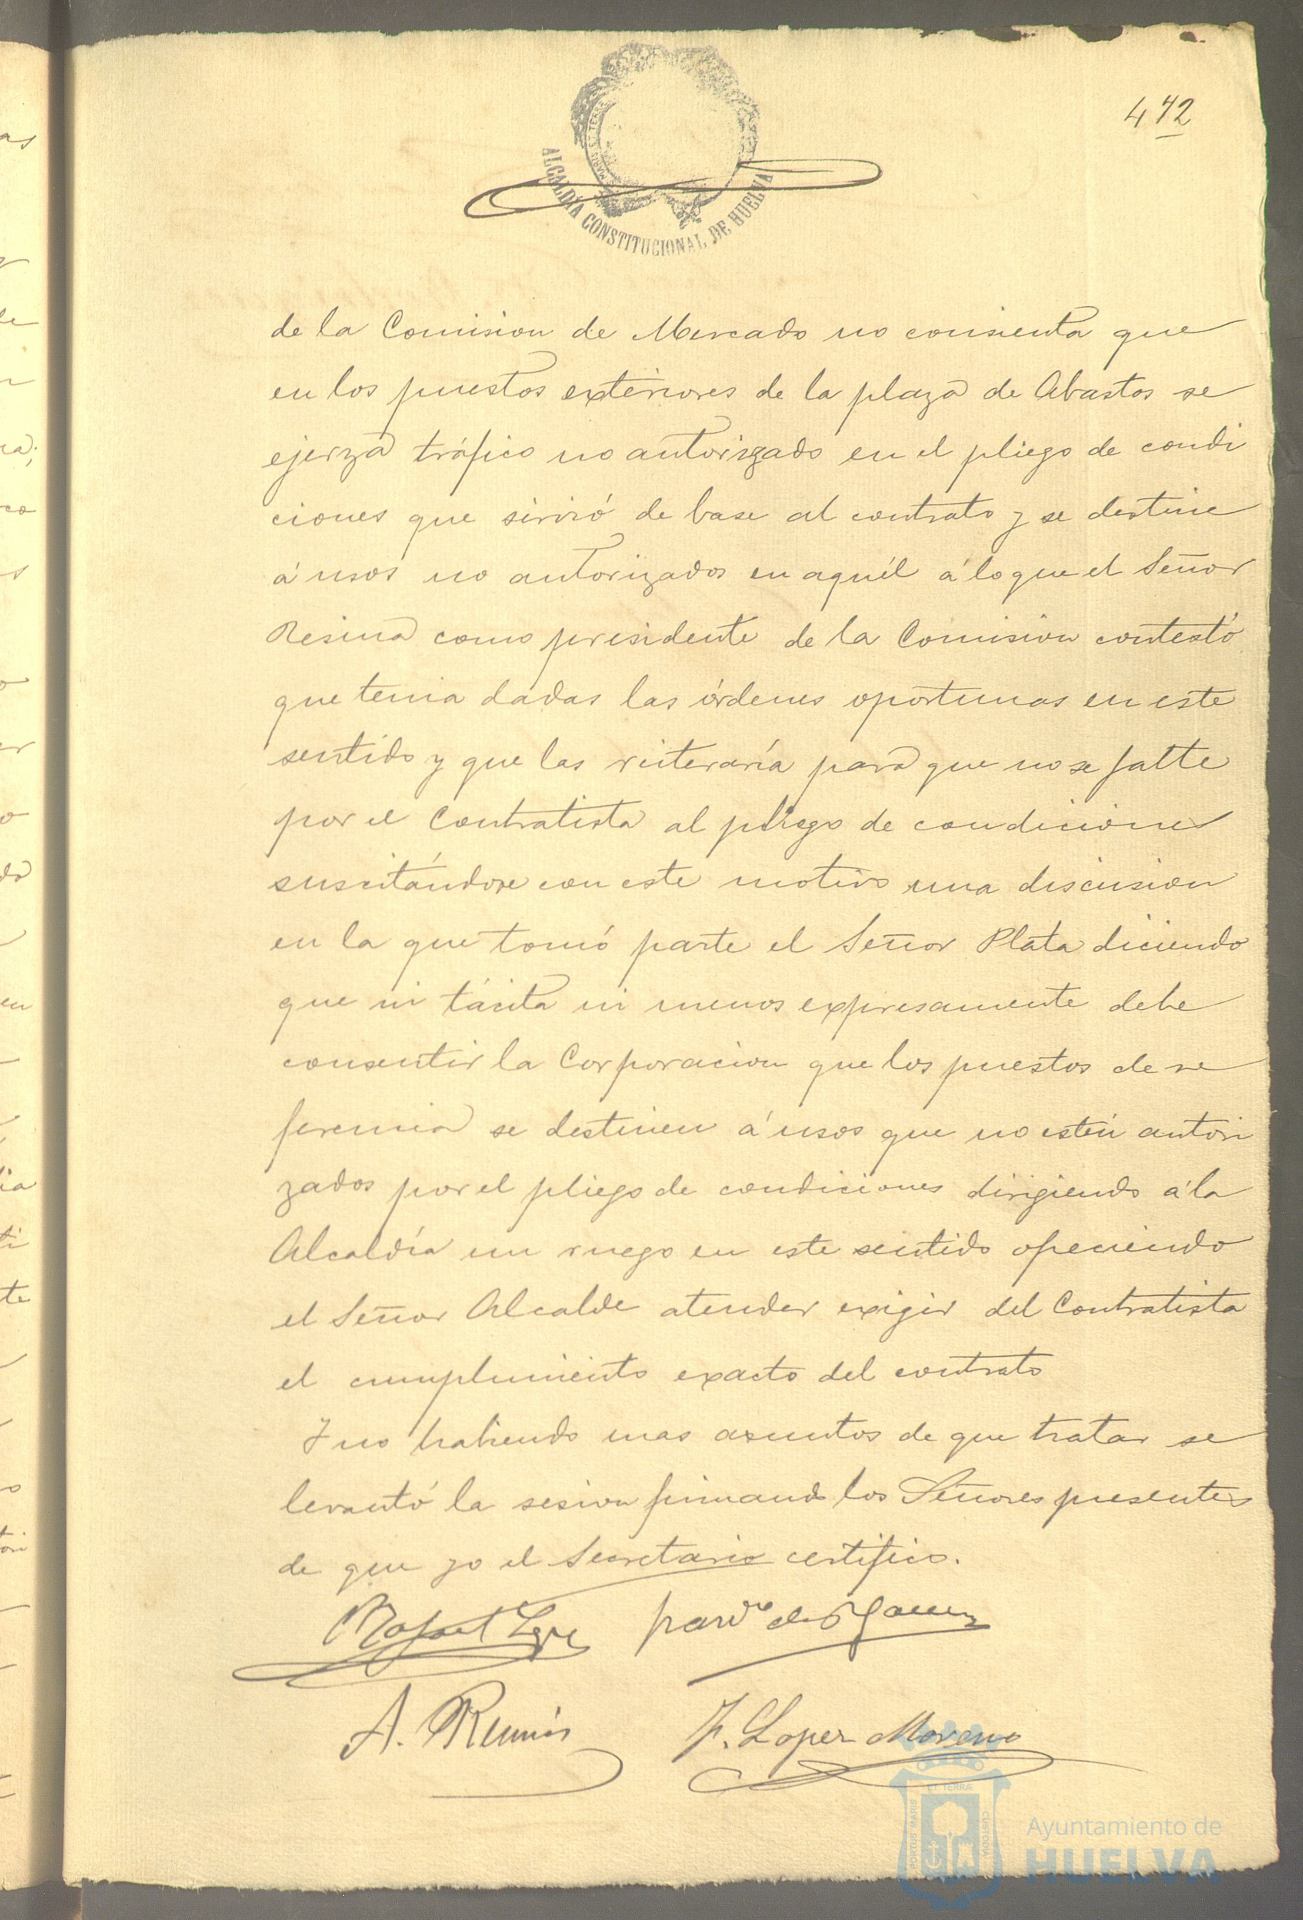 472
ALCALDÍA CONSTITUCIONAL DE HUELVA
de la Comision de Mercado no consienta que
en los puestos exteriores de la plaza de Abastos se
ejerza tráfico no autorizado en el pliego de condi
ciones que sirvió de base al contrato y se destine
á usos no autorizados en aquél á lo que el Señor
Resina como presidente de la Comision contestó
que tenia dadas las órdenes oportunas en este
sentido y que las reiteraría para que no se falte
por el Contratista al pliego de condiciones
suscitándose con este motivo una discusion
en la que tomó parte el Señor Plata diciendo
que ni tácita ni menos expresamente debe
consentir la Corporacion que los puestos de re
ferencia se destinen á usos que no estén autori
zados por el pliego de condiciones dirigiendo á la
Alcaldía un ruego en este sentido ofreciendo
el Señor Alcalde atender exigir del Contratista
el cumplimiento exacto del contrato
Y no habiendo mas asuntos de que tratar se
levantó la sesion firmando los Señores presentes
de que yo el Secretario certifico.
Rafael
A. F. Lopez Moreno
PORTUS MARIS ET TERRA CUSTODIA
Ayuntamiento de
HUELVA